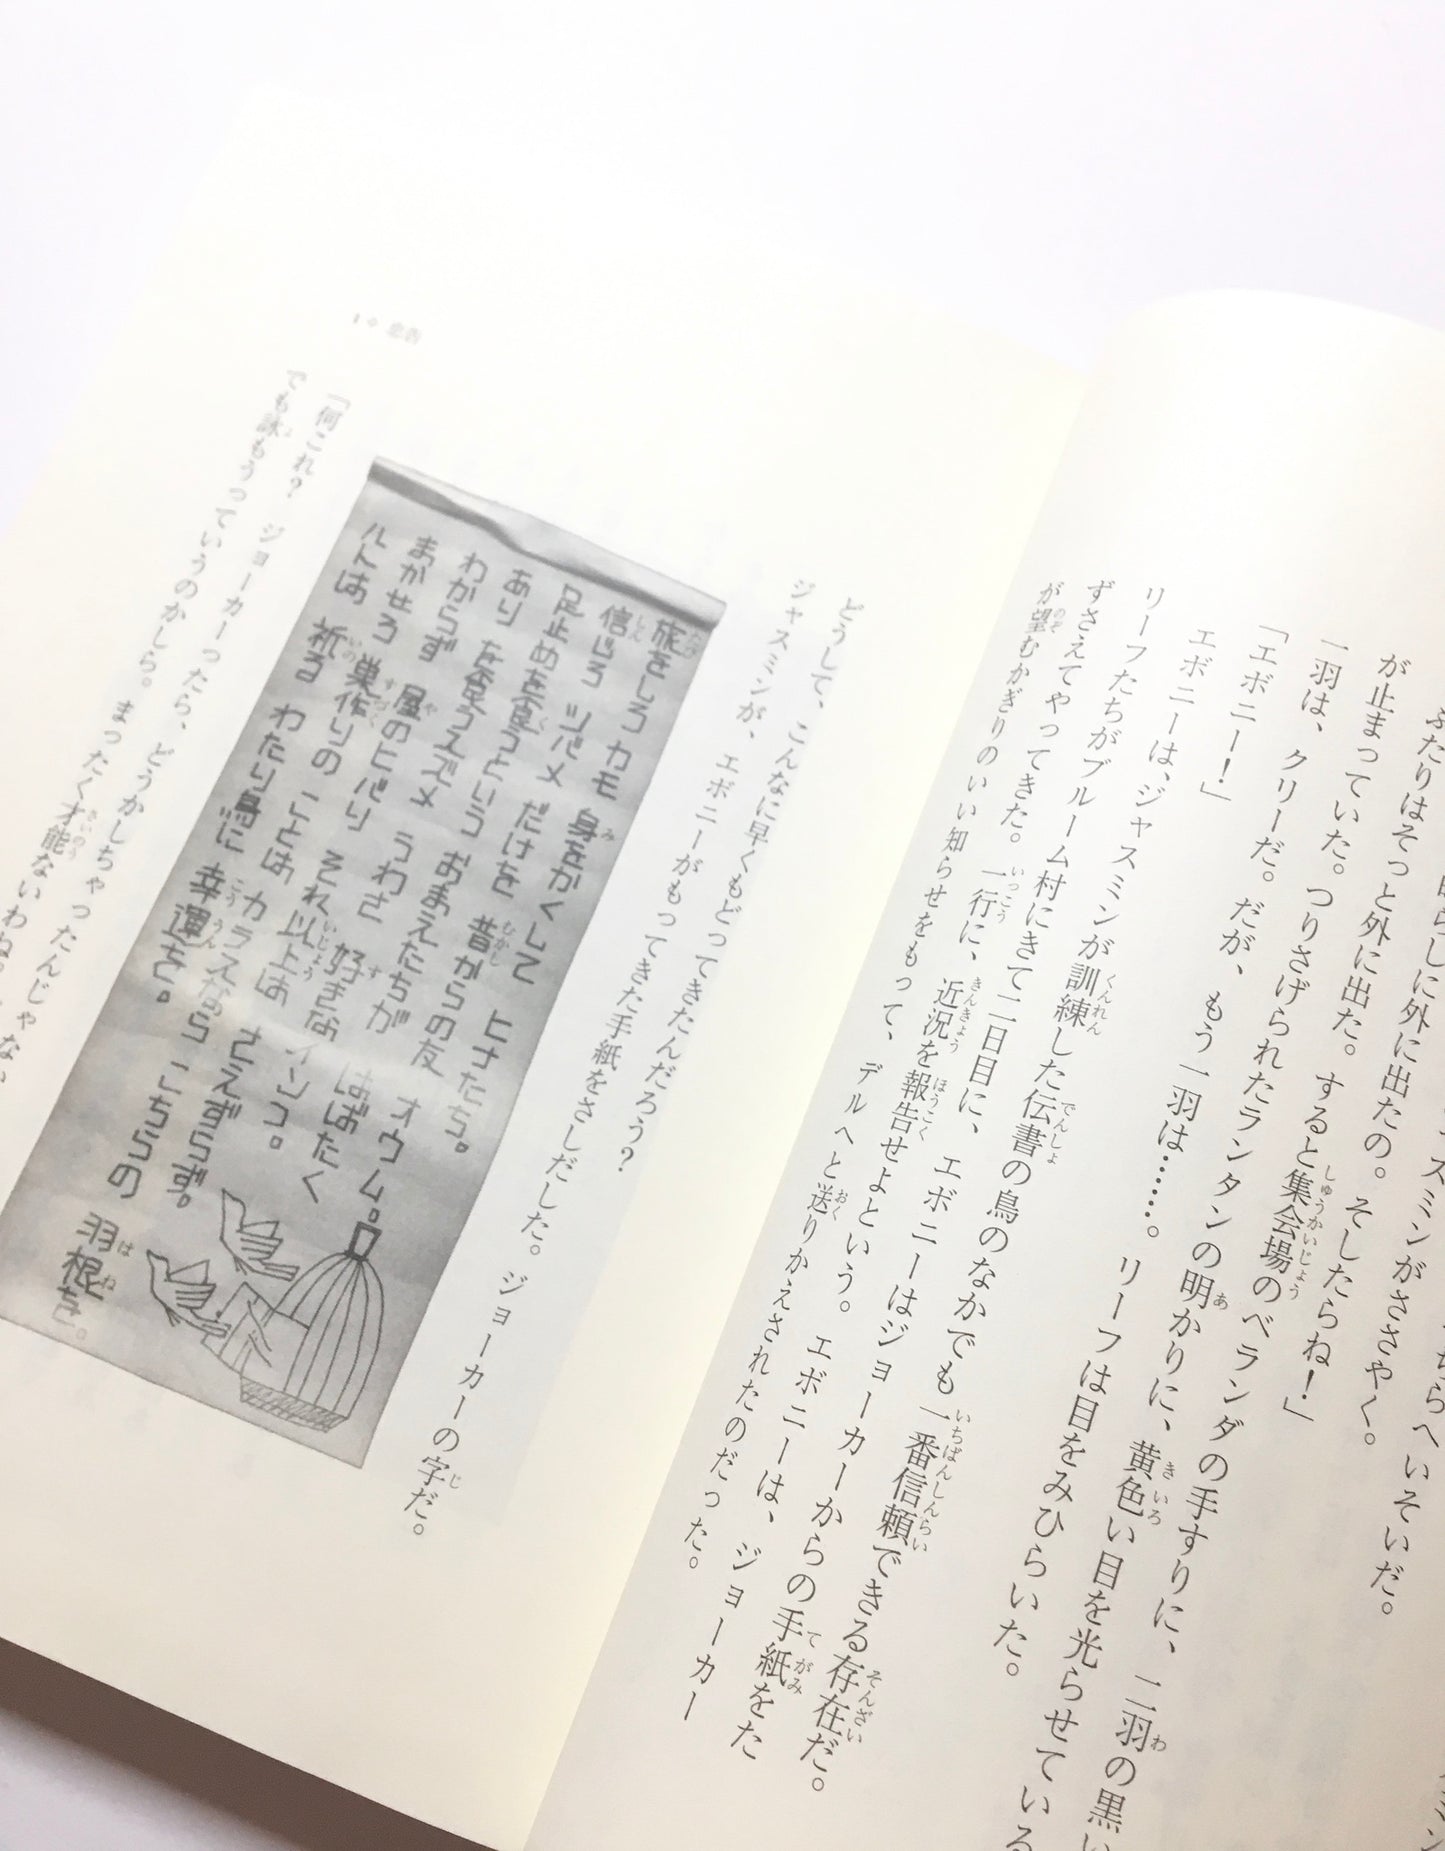 ふたりはそっと外に出た。
明らしに外に出たの。そしたらね！」
が止まっていた。つりさげられたランタンの明かりに、黄色い目を光らせている
一羽は、クリーだ。だが、もう一羽は……。リーフは目をみひらいた。
「エボニー！」
エボニーは、ジャスミンが訓練した伝書の鳥のなかでも一番信頼できる存在だ。
リーフたちがブルーム村にきて二日目に、エボニーはジョーカーからの手紙をた
ずさえてやってきた。一行に、近況を報告せよという。エボニーは、ジョーカー
が望むかぎりのいい知らせをもって、デルへと送りかえされたのだった。
どうして、こんなに早くもどってきたんだろう？
ジャスミンが、エボニーがもってきた手紙をさしだした。ジョーカーの字だ。
旅をしろカモ 身をかくして ヒナたち。
信じろ ツバメ だけを 昔からの友
足止めを食うという おまえたちが オウム。
あり を食うスズメ うわさ 好きな
わからず 屋のヒバリ それ以上は はばたく
まかせろ 巣作りの ことは カラス さえずらず。
ルトは 祈る わたり鳥に 幸運を。 こちらの 羽根を。
1 忠告
「何これ？ ジョーカーったら、どうかしちゃったんじゃない
でも詠もうっていうのかしら。まったく才能ないわね。